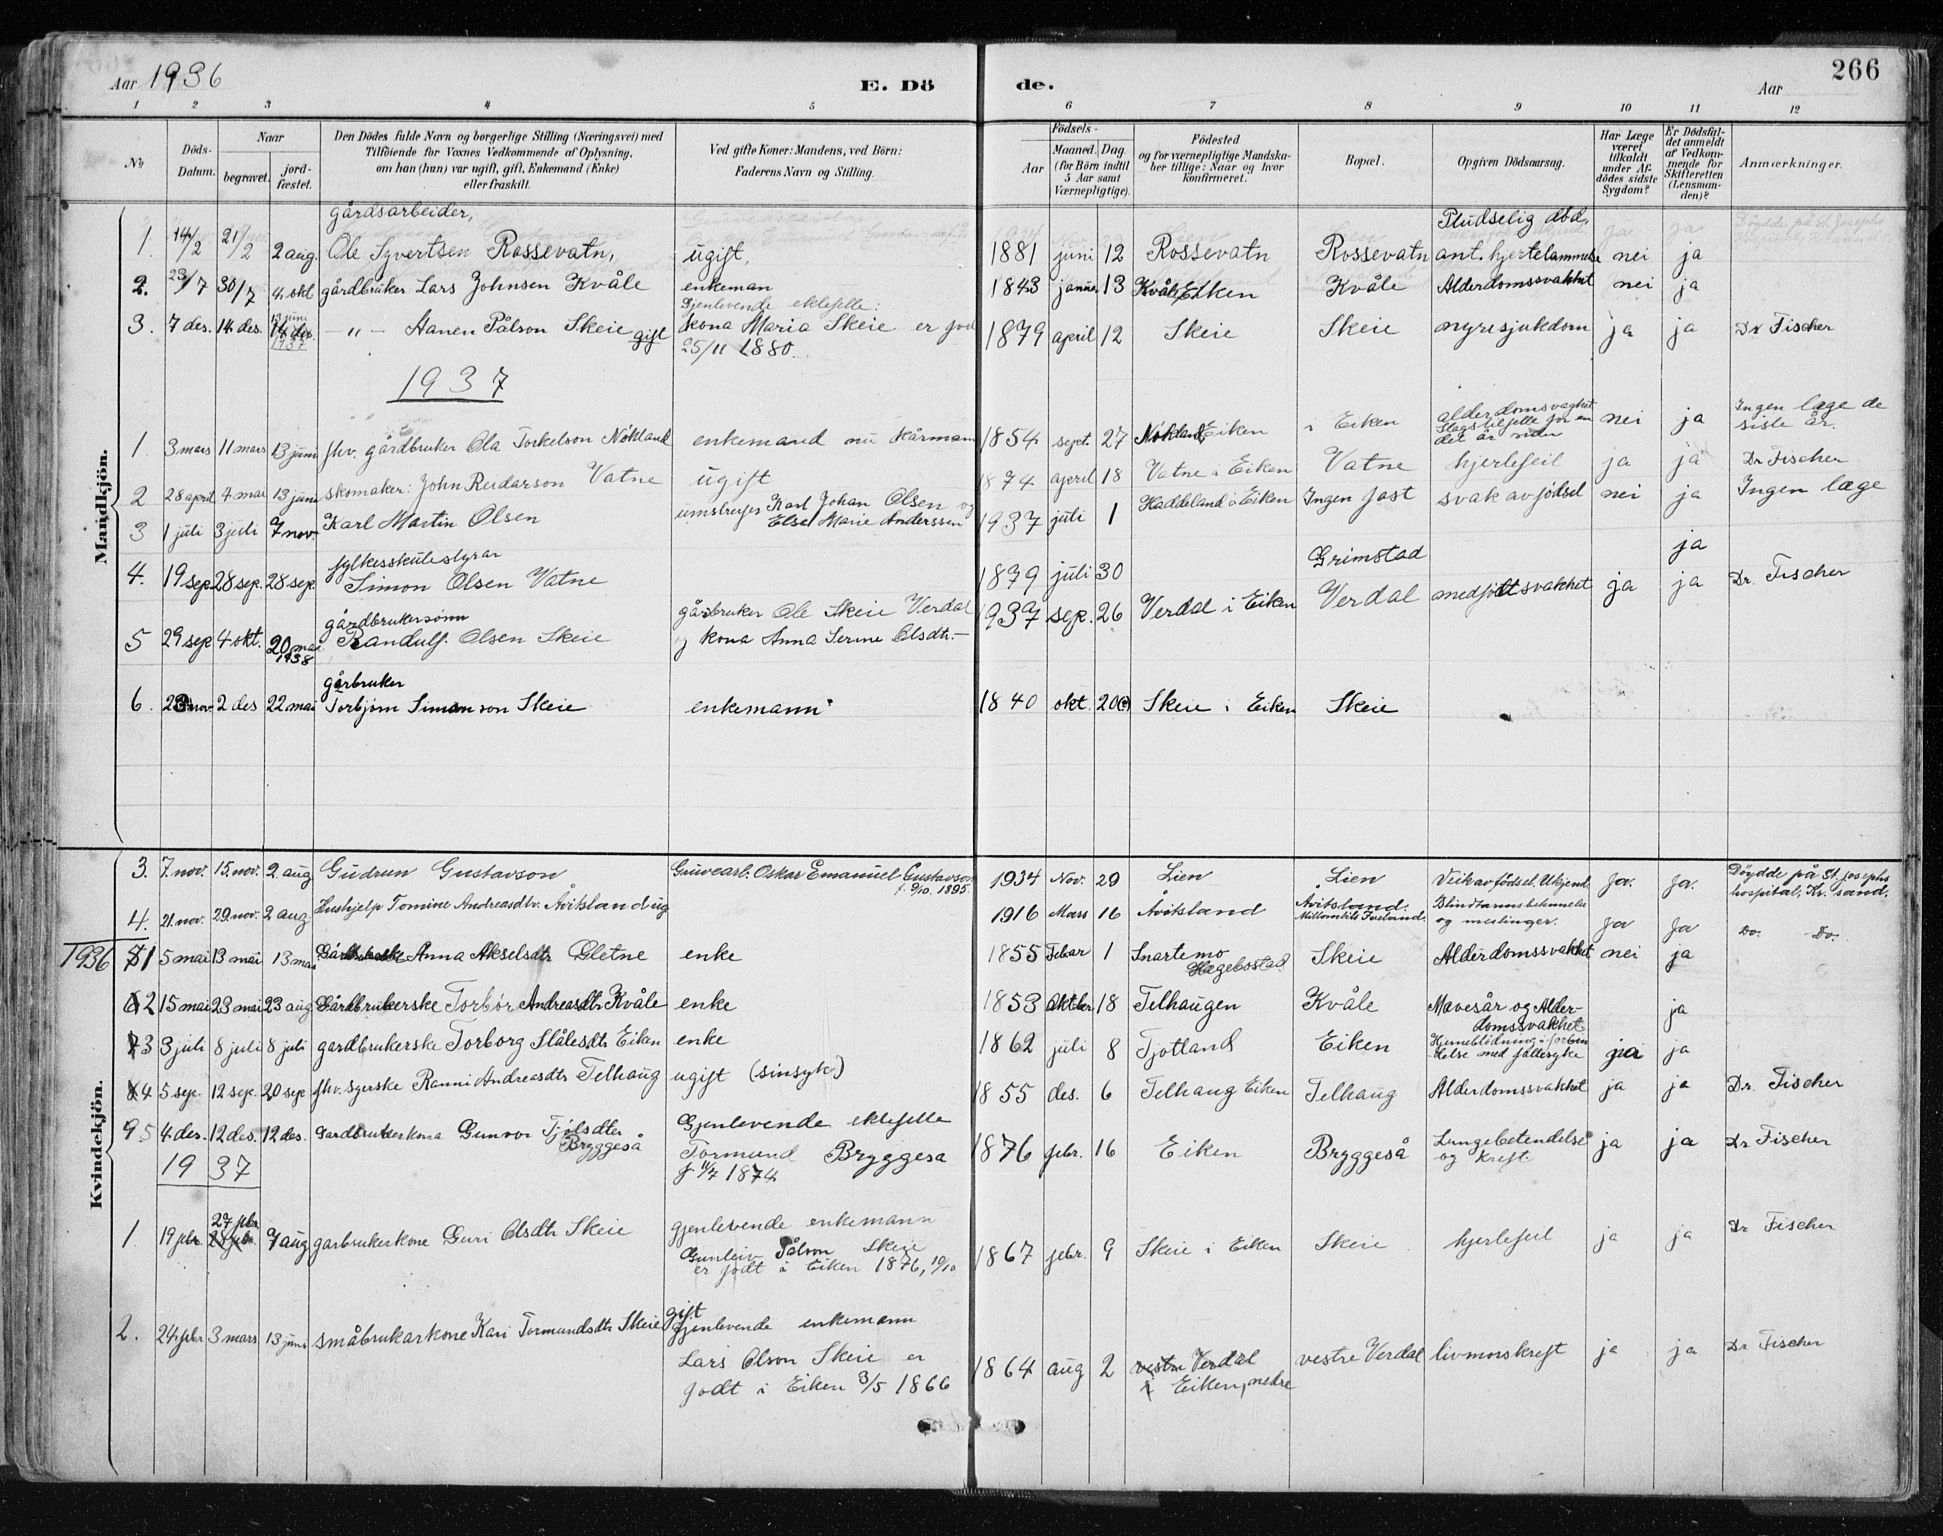 Aar 1936
E. Dö
de.
Aar
266
1 2 3 4 5 6 7 8 9 10 11 12
No
Döds-Datum.
Naar
begravet.
jord-fæstet.
Den Dödes fulde Navn og borgerlige Stilling (Næringsvei) med
Tilföiende for Voxnes Vedkommende af Oplysning,
om han (hun) var ugift, gift, Enkemand (Enke)
eller fraskilt.
Ved gifte Koner: Mandens, ved Börn:
Faderens Navn og Stilling.
Födsels-
Aar
Maaned. Dag.
(for Börn indtil
5 Aar samt
Værnepligtige).
Födested
og for værnepligtige Mandska-
ber tillige: Naar og hvor
konfirmeret.
Bopæl.
Opgiven Dödsaarsag.
Har Læge
været
tilkaldt
under Af-
dödes sidste
Sygdom?
Er Dödsfal-
det anmeldt
af Vedkom-
mende for
Skifteretten
(Lensman-
den)?
Anmærkninger.
Mandkjön.
gårdsarbeider, Pludselig död,
1. 14/2 21/2 2 aug. Ole Syvertsen Rossevatn, ugift, 1881 juni 12 Rossevatn Rossevatn ant. hjertelammelse nei ja
2. 23/7 30/7 4. okt gårdbruker Lars Johnsen Kvåle enkeman 1843 januar 13 Kvåle, Eiken Kvåle Alderdomssvakhet nei ja
Gjenlevende ektefelle:
3. 7 des. 14 des. 13 juni 1937 -"- Hanen Pålson Skeie gift kona Maria Skeie er fød 1879 april 12 Skeie Skeie nyresjukdom ja ja Dr Fischer
25/11 1880.
1937
1 3 mars 11 mars 13 juni fhv. gårdbruker Ola Torkelson Nökland enkemand nu kårmann 1854 sept. 27 Nökland, Eiken i Eiken alderdomsvaghet Slagstilfelle for en del år siden nei ja Ingen læge de siste år.
2 28 april 4 mai 13 juni skomaker: John Reidarson Vatne ugift 1874 april 18 Vatne i Eiken Vatne hjertefeil ja ja Dr Fischer
3 1 juli 3 juli 7 nov. Karl Martin Olsen umstreifer Karl Johan Olsen og 1937 juli 1 Haddeland i Eiken Ingen fast svak av födsel nei ja Ingen læge
Else Marie Anderssen
fylkesskulestyrar
4. 19 sep. 28 sep. 28 sep. Simon Olsen Vatne 1879 juli 30 Grimstad ja
gårdbrukersønn
5 29 sep 4 okt. 20 mai 1938 Randulf Olsen Skeie gårbruker Ole Skeie Verdal 1937 sep. 26 Verdal i Eiken Verdal medfødt svakhet ja ja Dr. Fischer
og kona Anna Serine Olsdtr.-
gårbruker
6. 23 nov 2 des 22 mai Torbjörn Simonson Skeie enkemann 1840 okt. 20 Skeie i Eiken Skeie
Kvindekjön.
3. 7. nov. 15. nov. 2. aug Gudrun Gustavson Gruvearb. Oskar Emanuel Gustavson 1934 Nov. 29 Lien Lien Veik av födsel. Ukjend. Ja. Ja. Döydde på St. Josephs hospital, Kr. sand.
f. 9/10. 1895.
4. 21. nov. 29. nov. 2 aug. Hushjelp Tomine Andreasdtr. Åvitsland ugift 1916 Mars 16 Åvitsland Åvitsland. Blindtarmsbetennelse og meslinger. Ja Ja Do. Do.
1936 1 5 mai 13 mai 13 mai Gårdbrukerske Anna Akselsdtr Gletne enke 1855 Febar 1 Snartemo Hægebostad Skeie Alderdomssvakhet nei ja
2 15 mai 23 mai 23 aug Gårdbrukerske Torbör Andreasdtr Kvåle enke 1853 Oktber 18 Telhaugen Kvåle Mavesår og Alder-
domssvakhet ja
3 3 juli 8 juli 8 juli gardbrukerske Torborg Stålesdtr Eiken enke 1862 juli 8 Tjotland Eiken Hjerneblödning i forbin-
delse med fallesyke ja ja
4 5 sep. 12 sep. 20 sep fhv. syerske Ranni Andreasdtr Telhaug ugift (sinsyk.) 1855 des. 6 Telhaug Eiken Telhaug Alderdomssvakhet ja ja Dr. Fischer
5 4. des. 12 des. 12 des. Gardbrukerkona Gunvor Tjölsdtr Bryggeså Gjenlevende ektefelle
Tormund Bryggesa 1876 febr. 16 Eiken Bryggeså Lungebetendelse og kreft. ja ja Dr Fischer
f 11/7 1874
1937
1. 19 febr. 27 febr. 7 aug garbrukerkone Guri Olsdtr Skeie gjenlevende enkemann
Gunleiv Pålson Skeie 1867 febr. 9 Skeie i Eiken Skeie hjertefeil ja ja Dr Fischer
er født i Eiken 1876, 10/10
2. 24 febr 3 mars 13 juni småbrukarkone Kari Tormundsdtr Skeie gift
gjenlevende enkemann
Lars Olson Skeie er 1864 aug 2 vestre Verdal i Eiken, nedre vestre Verdal livmorskreft ja ja Dr Fischer
fodt i Eiken 3/5 1866